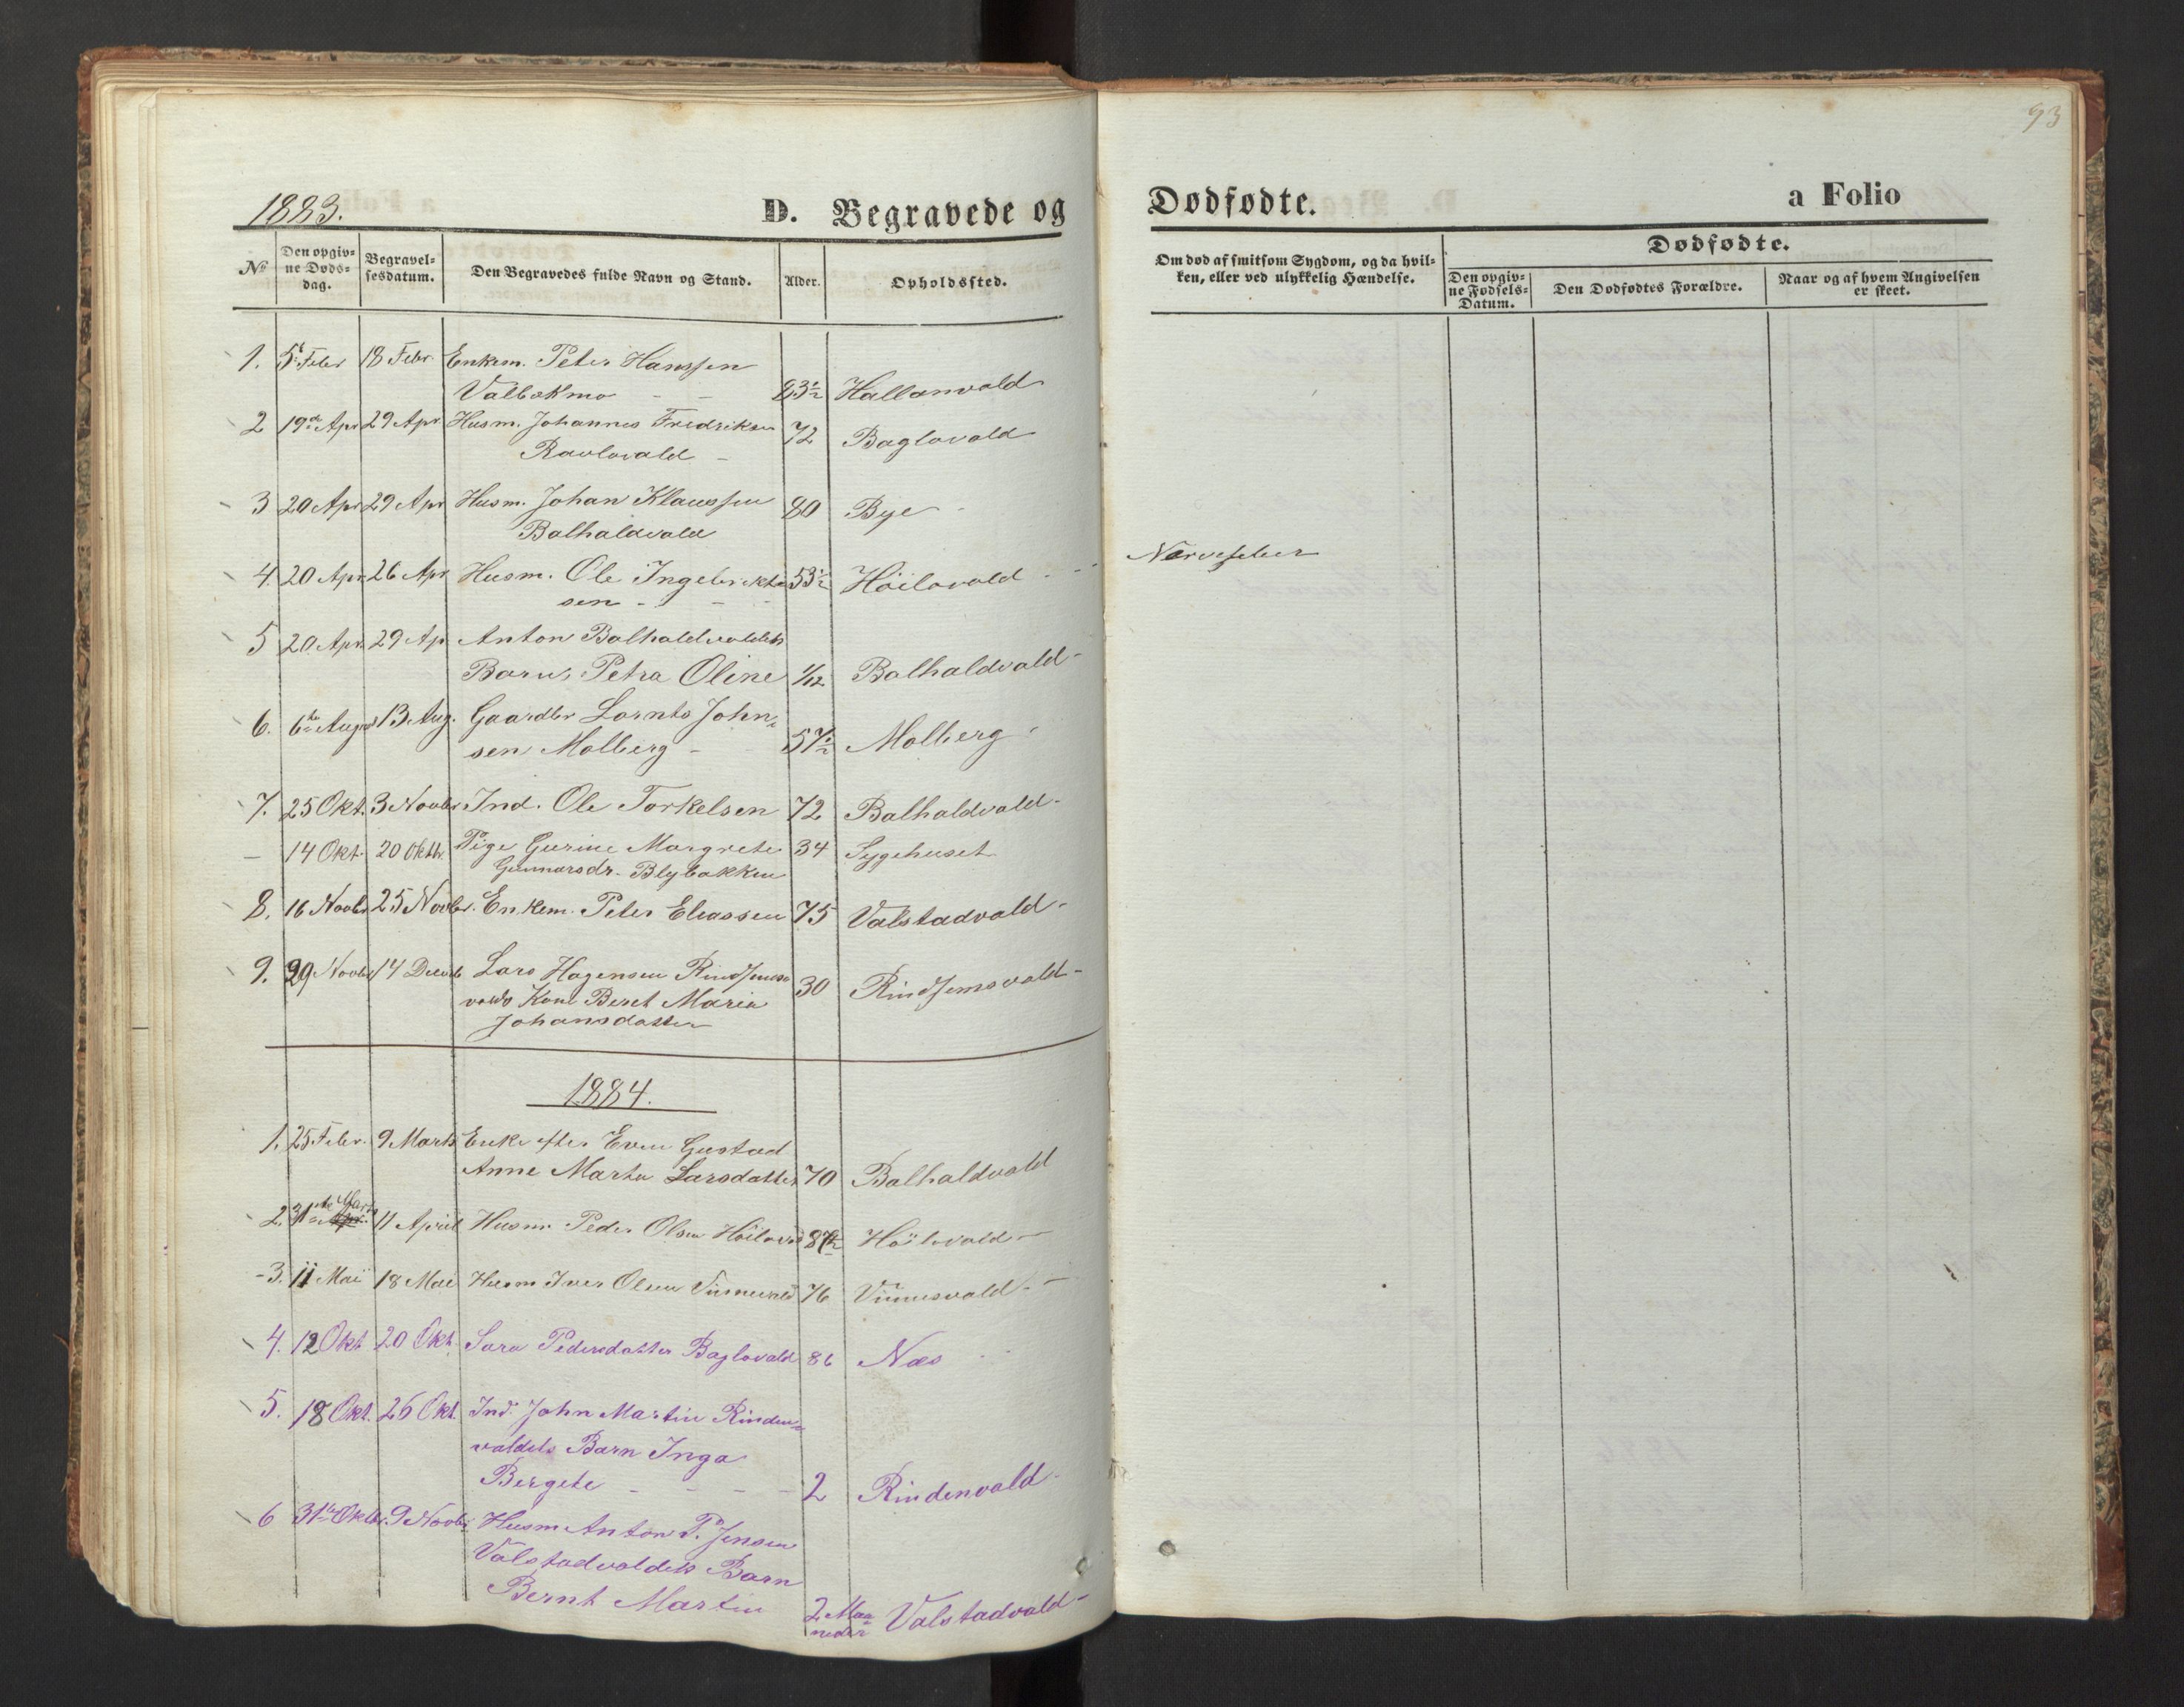 93
1883.
D. Begravede og
Dødfødte.
a Folio
No
Den opgiv-
ne Døds-
dag.
Begravel-
sesdatum.
Den Begravedes fulde Navn og Stand.
Alder.
Opholdssted.
Om død af smitsom Sygdom, og da hvil-
ken, eller ved ulykkelig Hændelse.
Dødfødte.
Den opgiv-
ne Fødsels-
Datum.
Den Dødfødtes Forældre.
Naar og af hvem Angivelsen
er skeet.
1. 5 Febr 18 Febr. Enkem. Peter Hanssen
Valbækmo - - 83½ Hallanvald
2 19de Apr 29 Apr Husm. Johannes Fredriksen 72 Baglovald
Ravlovald -
3 20 Apr 29 Apr Husm. Johan Klaussen 80 Bye
Balhaldvald
4. 20 Apr 26 Apr Husm. Ole Ingebrikt 53½ Höilovald - - Nervefeber
sen - - -
5 20 Apr. 29 Ap. Anton Balhaldvaldets
Barn, Petra Oline 1/12 Balhaldvald -
6. 6te August 13 Aug. Gaardbr Lornts John-
sen Molberg - 57½ Molberg
7. 25 Okt. 3 Novbr Ind. Ole Torkelsen 72 Balhaldvald -
- 14 Okt. 20 Oktbr. Pige Gurine Margrete 34 Sygehuset
Gunnarsdr. Blybakken
8. 16 Novbr 25 Novbr. Enkem. Peter Eliassen 75 Valstadvald -
9. 29 Novbr 14 Decbr Lars Hagensen Rindsems 30 Rindsemsvald -
valds Kone Beret Maria
Johansdatter
1884.
1. 25 Febr. 9 Marts Enke efter Even Gustad
Anne Marta Larsdatter 70 Balhaldvald
2. 31te Marts 11 April Husm. Peder Olsen Höilovald 87½ Höilovald -
3. 11 Mai 18 Mai Husm Iver Olsen Vinnesvald 76 Vinnesvald -
4. 12 Okt 20 Okt. Sara Pedersdatter Baglovald 86 Næs
5. 18 Okt. 26 Okt. Ind. John Martin Rinden-
valdets Barn Inga
Bergete - - - - 2 Rindenvald
6 31te Oktbr. 9 Novbr Husm Anton P. Jensen
Valstadvaldets Barn
Bernt Martin 2 Maa- Valstadvald -
neder